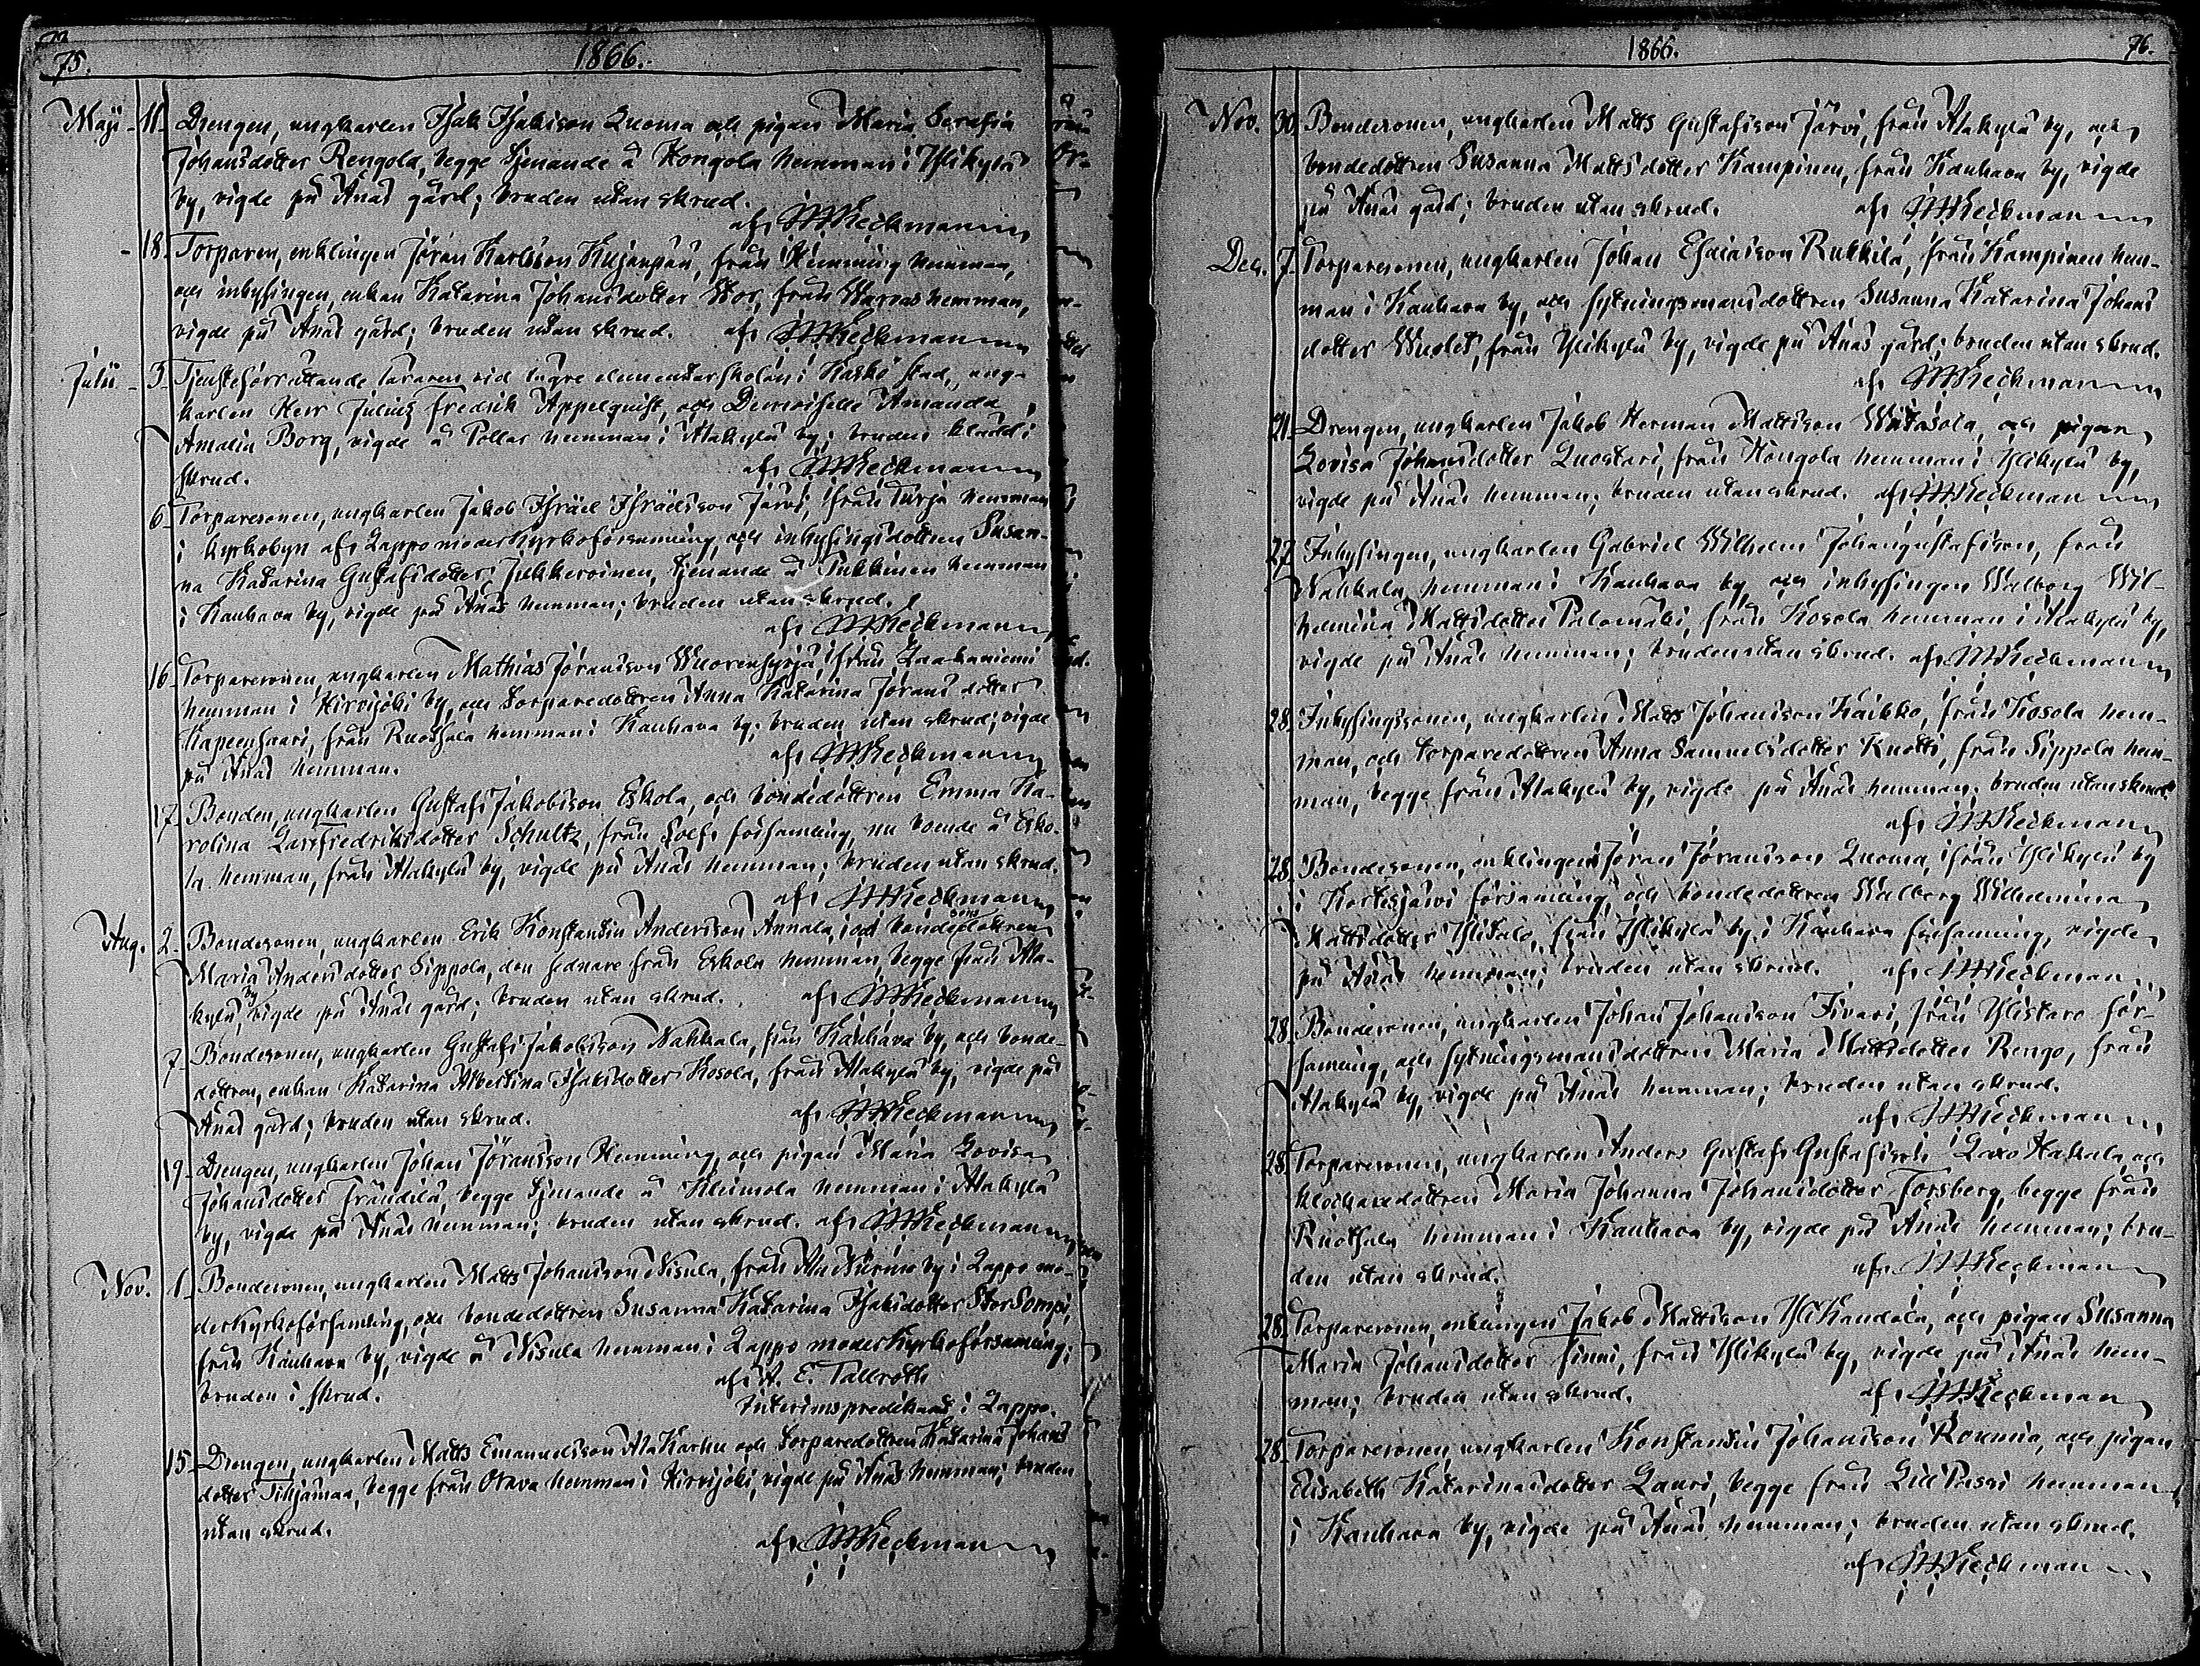 75.
1866.
Maji - 11. Drengen, ungkarlen Isak Isaksson Luoma och pigan Maria Serafia
Johansdotter Rengola, begge tjenande å Kongola hemman i Ylikylä
by, vigde på Änäs gård; bruden utan skrud.
af
- 18. Torparen, enklingen Jöran Karlsson Kujanpää, från Hemming hemman,
och inhysingen, enkan Katarina Johansdotter från Warvas hemman,
vigde på Änäs gård; bruden utan skrud. af
Julii - 5. Tjensteförrättande läraren vid lägre elementarskolan i Kaskö stad, ung-
karlen Herr Julius Fredrik Appelquist, och Demoiselle Amanda
Amalia Borg, vigde å Pollar hemman i Alakylä by; bruden klädd i
skrud. af
6. Torparesonen, ungkarlen Jakob Israel Israelsson Järvi, från Turja hemman
i kyrkobyn af Lappo moderkyrkoförsamling, och inhysingsdottren Susan-
na Katarina Gustafsdotter tjenande å Pukkinen hemman
i Kauhava by, vigde på Änäs hemman; bruden utan skrud.
af
16. Torparesonen, ungkarlen Mathias Jöransson Wuorensyrjä, från Laakaniemi
hemman i Hirvijoki by, och torparedottren Anna Katarina Jörans dotter
Kapeensaari, från Ruotsala hemman i Kauhava by; bruden utan skrud; vigde
på Änäs hemman. af
17. Bonden, ungkarlen Gustaf Jakobsson Eskola, och bondedottren Emma Ka-
rolina Larsfredriksdotter Schultz, från Solf församling, nu boende å Esko-
la hemman, från Alakylä by, vigde på Änäs hemman; bruden utan skrud.
af
Aug. 2. Bondesonen, ungkarlen Erik Konstantin Andersson Annala, och bondesonsdottren
Maria Andersdotter Sippola, den sednare från Eskola hemman, begge från Ala-
kylä by, vigde på Änäs gård; bruden utan skrud. af
7. Bondesonen, ungkarlen Gustaf Jakobsson Nahkala, från Kauhava by, och bonde-
dottren, enkan Katarina Albertina Isaksdotter Kosola, från Alakylä by, vigde på
Änäs gård; bruden utan skrud. af
19. Drengen, ungkarlen Johan Jöransson Hemming, och pigan Maria Lovisa
Johansdotter Frändilä, begge tjenande å Kleimola hemman i Alakylä
by, vigde på Änäs hemman; bruden utan skrud. af
Nov. 1. Bondesonen, ungkarlen Matts Johansson Nisula, från Ala Nurmo by i Lappo mo-
derkyrkoförsamling, och bondedottren Susanna Katarina Isaksdotter Stor Sompi,
från Kauhava by, vigde å Nisula hemman i Lappo moderkyrkoförsamling;
bruden i skrud. af A. E. Tallroth
Interimspredikant i Lappo.
15. Drengen, ungkarlen Matts Emanuelsson Ala Karhu och torparedottren Katarina Johans
dotter Tihjämaa, begge från Otava hemman i Hirvijoki, vigde på Änäs hemman; bruden
utan skrud.
af
1866.
76.
Nov. 30. Bondesonen, ungkarlen Matts Gustafsson Järvi, från Alakylä by, och
bondedottren Susanna Mattsdotter Kampinen, från Kauhava by, vigde
på Änäs gård; bruden utan skrud. af
Dec. 7. Torparesonen, ungkarlen Johan Esaiasson Rukkila, från Kampinen hem-
man i Kauhava by, och sytningsmansdottren Susanna Katarina Johans
dotter från Ylikylä by, vigde på Änäs gård; bruden utan skrud.
af
21. Drengen, ungkarlen Jakob Herman Mattsson och pigan
Lovisa Johansdotter Luostari, från Kongola hemman i Ylikylä by,
vigde på Änäs hemman; bruden utan skrud. af
27. Inhysingen, ungkarlen Gabriel Wilhelm Johangustafsson, från
Nahkala hemman i Kauhava by, och inhysingen Walborg Wil-
helmina Mattsdotter Palomäki, från Kosola hemman i Alakylä by,
vigde på Änäs hemman; bruden utan skrud. af
28. Inhysingssonen, ungkarlen Matts Johansson Kaikko, från Kosola hem-
man, och torparedottren Anna Samuelsdotter Knotti, från Sippola hem-
man, begge från Alakylä by, vigde på Änäs hemman; bruden utan skrud.
af
28. Bondesonen, enklingen Jöran Jöransson Luoma, från Ylikylä by
i Kortesjärvi församling, och bondedottren Walborg Wilhelmina
Mattsdotter Ylitalo, från Ylikylä by i Kauhava församling, vigde
på Änäs hemman; bruden utan skrud. af
28. Bondesonen, ungkarlen Johan Johansson Fivari, från Ylistaro för-
samling, och sytningsmansdottren Maria Mattsdotter Rengo, från
Alakylä by, vigde på Änäs hemman; bruden utan skrud.
af
28. Torparesonen, ungkarlen Anders Gustaf Gustafsson Hakala, och
klockaredottren Maria Johanna Johansdotter Forsberg, begge från
Ruotsala hemman i Kauhava by, vigde på Änäs hemman; bru-
den utan skrud. af
28. Torparesonen, enklingen Jakob Mattsson Yli Kandola, och pigan Susanna
Maria Johansdotter Finni, från Ylikylä by, vigde på Änäs hem-
man; bruden utan skrud. af
28. Torparesonen, ungkarlen Konstantin Johansson Roumia, och pigan
Elisabeth Katarinasdotter Lauri, begge från Lill Passi hemman
i Kauhava by, vigde på Änäs hemman; bruden utan skrud.
af